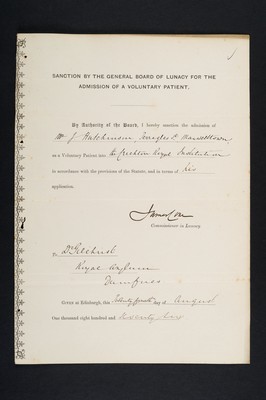 SANCTION BY THE GENERAL BOARD OF LUNACY FOR THE
ADMISSION OF A VOLUNTARY PATIENT.
By Authority of the Board, I hereby sanction the admission of
Mr J. Hutchinson, Terregles St Maxwelltown,
as a Voluntary Patient into the Crichton Royal Institution
in accordance with the provisions of the Statute, and in terms of his
application.
James Coxe
Commissioner in Lunacy
To Dr Gilchrist
Royal Asylum
Dumfries
GIVEN at Edinburgh, this Twenty fourth day of August
One thousand eight hundred and